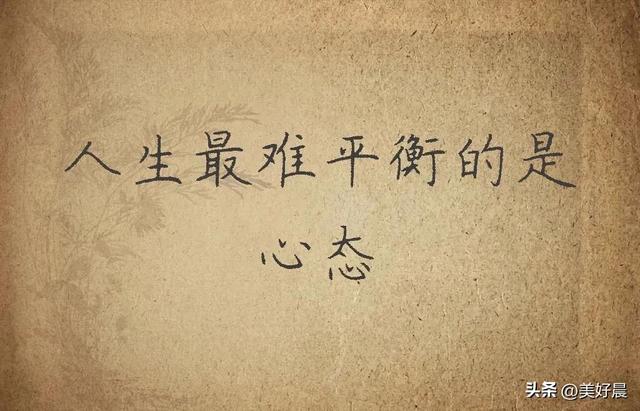 人生最难平衡的是
心态
头条 @美好晨